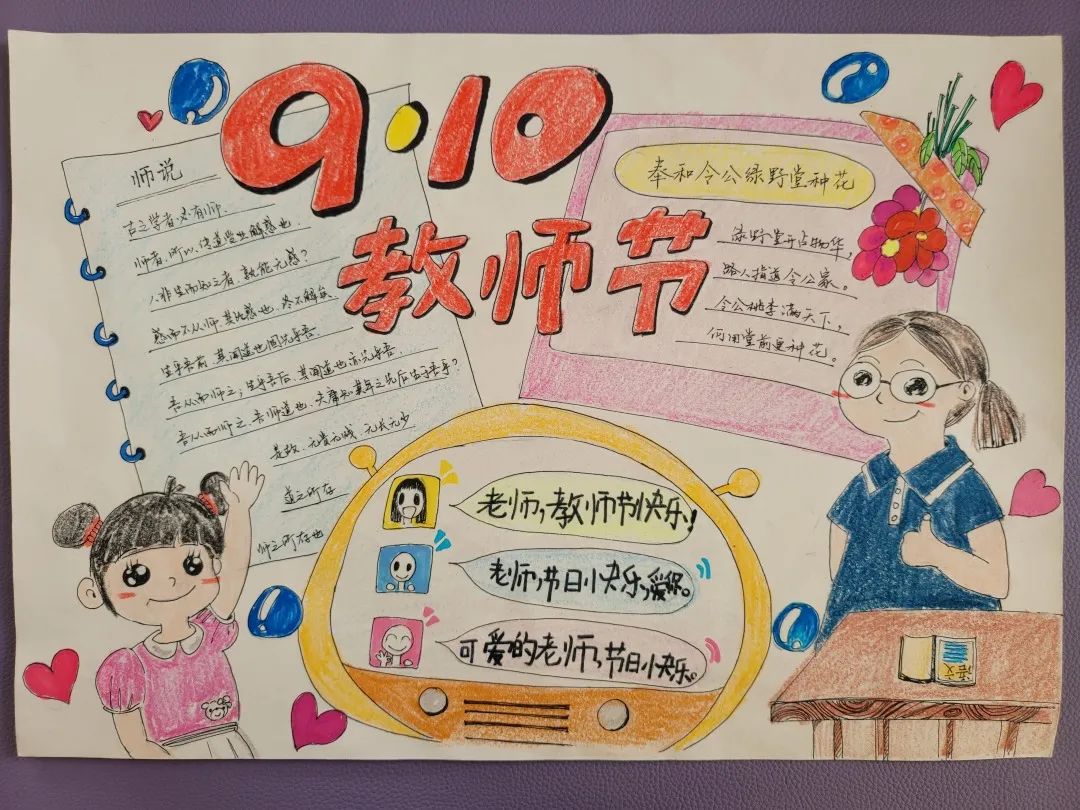 9·10
教师节
师说
古之学者必有师.
师者,所以传道受业解惑也.
人非生而知之者,孰能无惑?
惑而不从师,其为惑也,终不解矣
生乎吾前,其闻道也固先乎吾
吾从而师之;生乎吾后,其闻道也亦先乎吾,
吾从而师之.吾师道也,夫庸知其年之先后生于吾乎?
是故,无贵无贱,无长无少
道之所存
师之所存也
奉和令公绿野堂种花
绿野堂开占物华,
路人指道令公家。
令公桃李满天下,
何用堂前更种花。
老师,教师节快乐!
老师,节日快乐,爱你。
可爱的老师,节日快乐。
语文